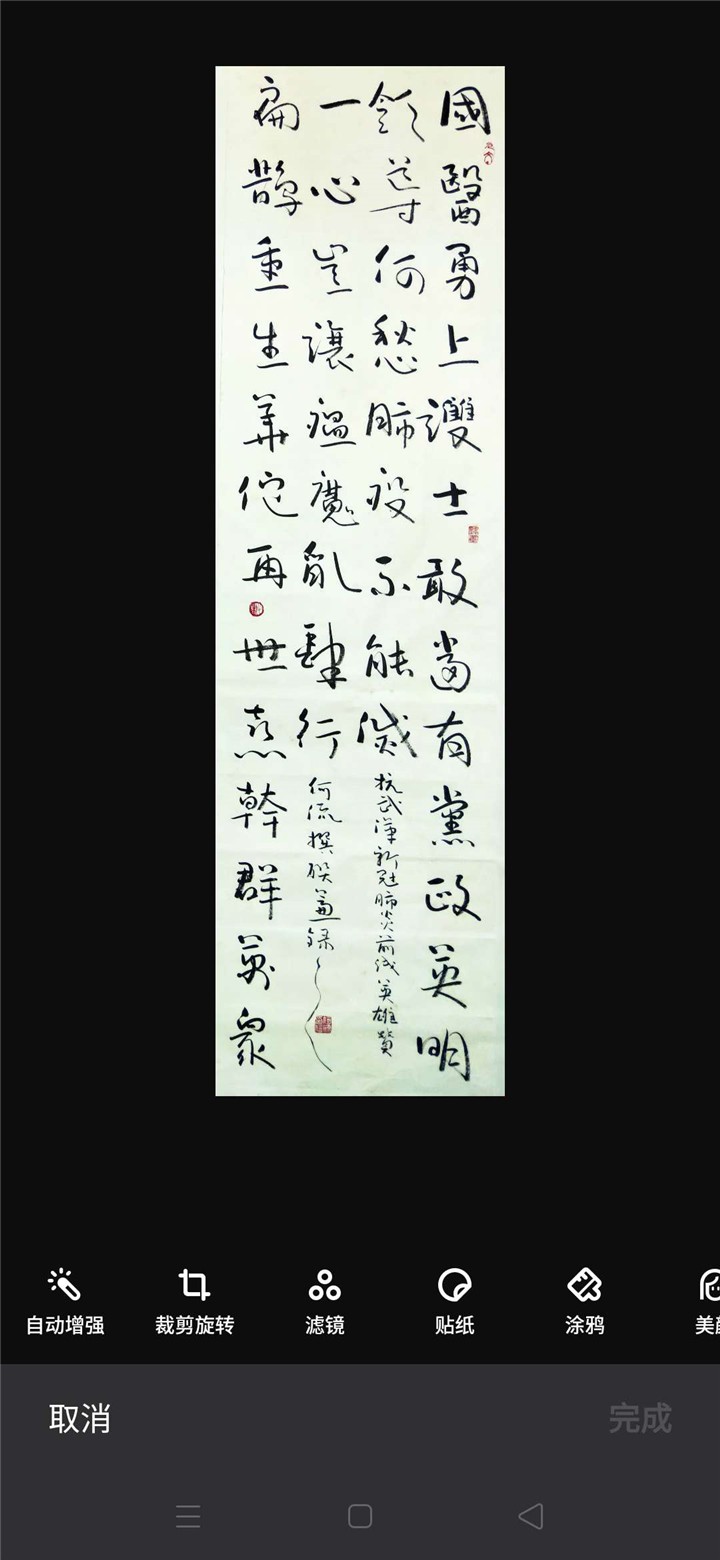 國醫勇上護士敢當有黨政英明
領導何愁肺疫不能滅
抗武漢新冠肺炎前线英雄贊
扁鵲重生華佗再世喜幹群萬眾
一心豈讓瘟魔亂肆行
何流撰联錄
自动增强
裁剪旋转
滤镜
贴纸
涂鸦
美
取消
完成